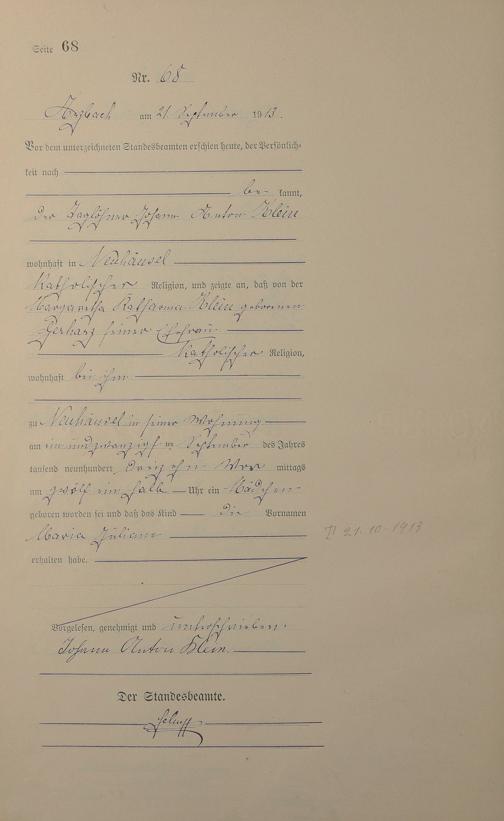 Seite 68
Nr. 68
Arzbach am 21 September 1913.
Vor dem unterzeichneten Standesbeamten erschien heute, der Persönlich-
keit nach
be- kannt,
der Taglöhner Johann Anton Klein
wohnhaft in Neuhäusel
katholischer Religion, und zeigte an, daß von der
Margaretha Katharina Klein geborenen
Gerharz seiner Ehefrau
katholischer Religion,
wohnhaft bei ihm
zu Neuhäusel in seiner Wohnung
am einundzwanzigsten September des Jahres
tausend neunhundert dreizehn Vor mittags
um zwölf ein halb Uhr ein Mädchen
geboren worden sei und daß das Kind die Vornamen
Maria Juliana
erhalten habe.
21.10.1913
Vorgelesen, genehmigt und unterschrieben.
Johann Anton Klein
Der Standesbeamte.